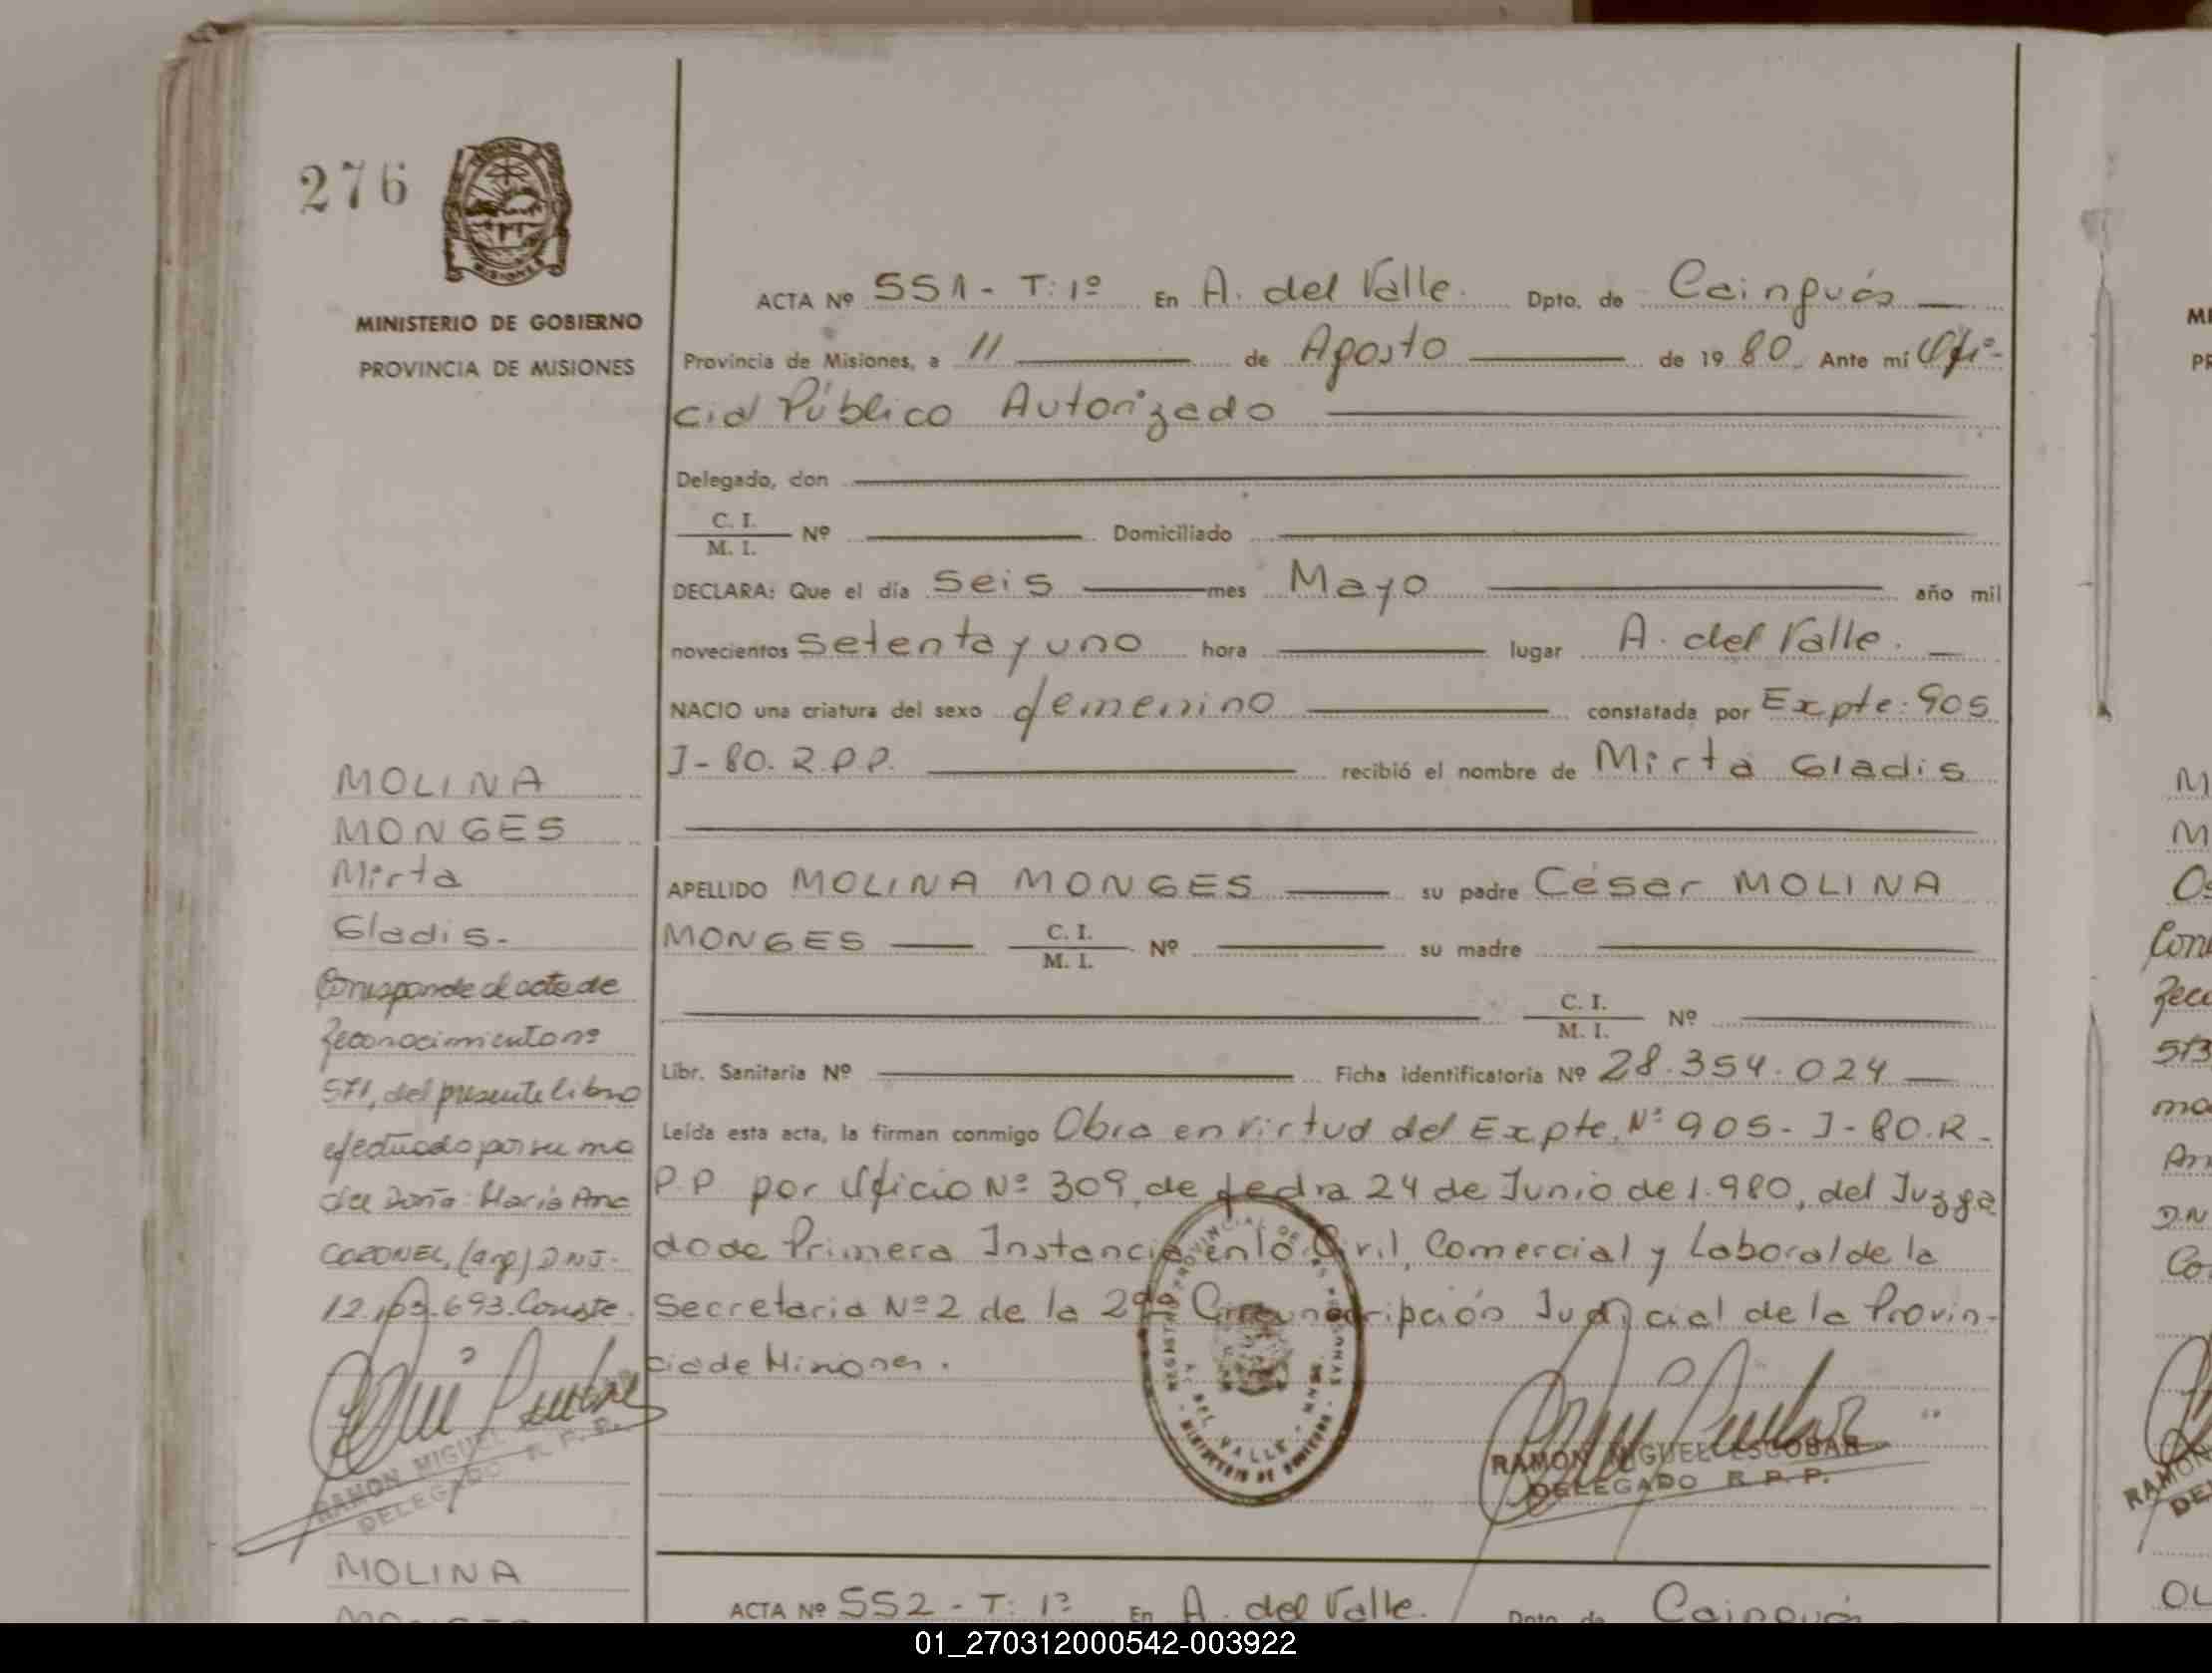 276
PROVINCIA DE
MISIONES
MINISTERIO DE GOBIERNO
PROVINCIA DE MISIONES
ACTA Nº 551 - T: 1º En A. del Valle. Dpto. de Cainguás
Provincia de Misiones, a 11 de Agosto de 1980 Ante mí Ofi-
cial Público Autorizado
Delegado, don
C. I.
M. I. Nº Domiciliado
DECLARA: Que el día Seis mes Mayo año mil
novecientos setenta y uno hora lugar A. del Valle.
NACIO una criatura del sexo femenino constatada por Expte: 905
J-80. R.P.P. recibió el nombre de Mirta Gladis
APELLIDO MOLINA MONGES su padre César MOLINA
MONGES C. I.
M. I. Nº su madre
C. I.
M. I. Nº
Libr. Sanitaria Nº Ficha identificatoria Nº 28.354.024
Leída esta acta, la firman conmigo Obra en virtud del Expte. Nº 905-J-80.R.
P.P por Oficio Nº 309, de fecha 24 de Junio de 1.980, del Juzga
do de Primera Instancia en lo Civil, Comercial y Laboral de la
Secretaria Nº 2 de la 2da Circunscripción Judicial de la Provin-
cia de Misiones.
MOLINA
MONGES
Mirta
Gladis.
Corresponde al acta de
Reconocimiento nº
571, del presente libro
efectuado por su ma
dre Doña: María Ana
CORONEL, (arg) DNI.
693. Conste.
RAMON MIGUEL
DELEGADO R. P. P.
REGISTRO PROVINCIAL DE LAS PERSONAS
A. DEL VALLE - MNES.
- MINISTERIO DE GOBIERNO -
RAMON MIGUEL ESCOBAR
DELEGADO R. P. P.
MOLINA
ACTA Nº 552 - T: 1º En A. del Valle. Dpto. de Cainguás
MI
PR
M
M
Os
573
DN
RAMON
DE
OL
01_270312000542-003922